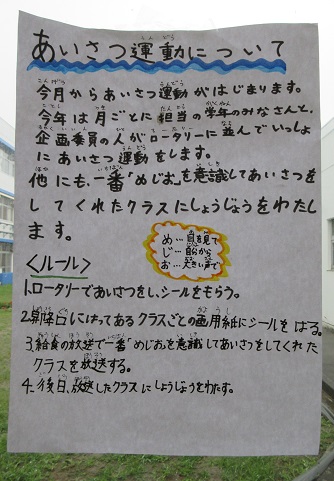 あいさつ運動について
今月からあいさつ運動がはじまります。
今年は月ごとに担当の学年のみなさんと、
企画委員の人がロータリーに並んでいっしょ
にあいさつ運動をします。
他にも、一番「めじお」を意識してあいさつを
してくれたクラスにしょうじょうをわたし
ます。
め…目を見て
じ…自分から
お…大きい声で
<ルール>
1.ロータリーであいさつをし、シールをもらう。
2.昇降口にはってあるクラスごとの画用紙にシールをはる。
3.給食の放送で一番「めじお」を意識してあいさつをしてくれた
クラスを放送する。
4.後日、放送したクラスにしょうじょうをわたす。